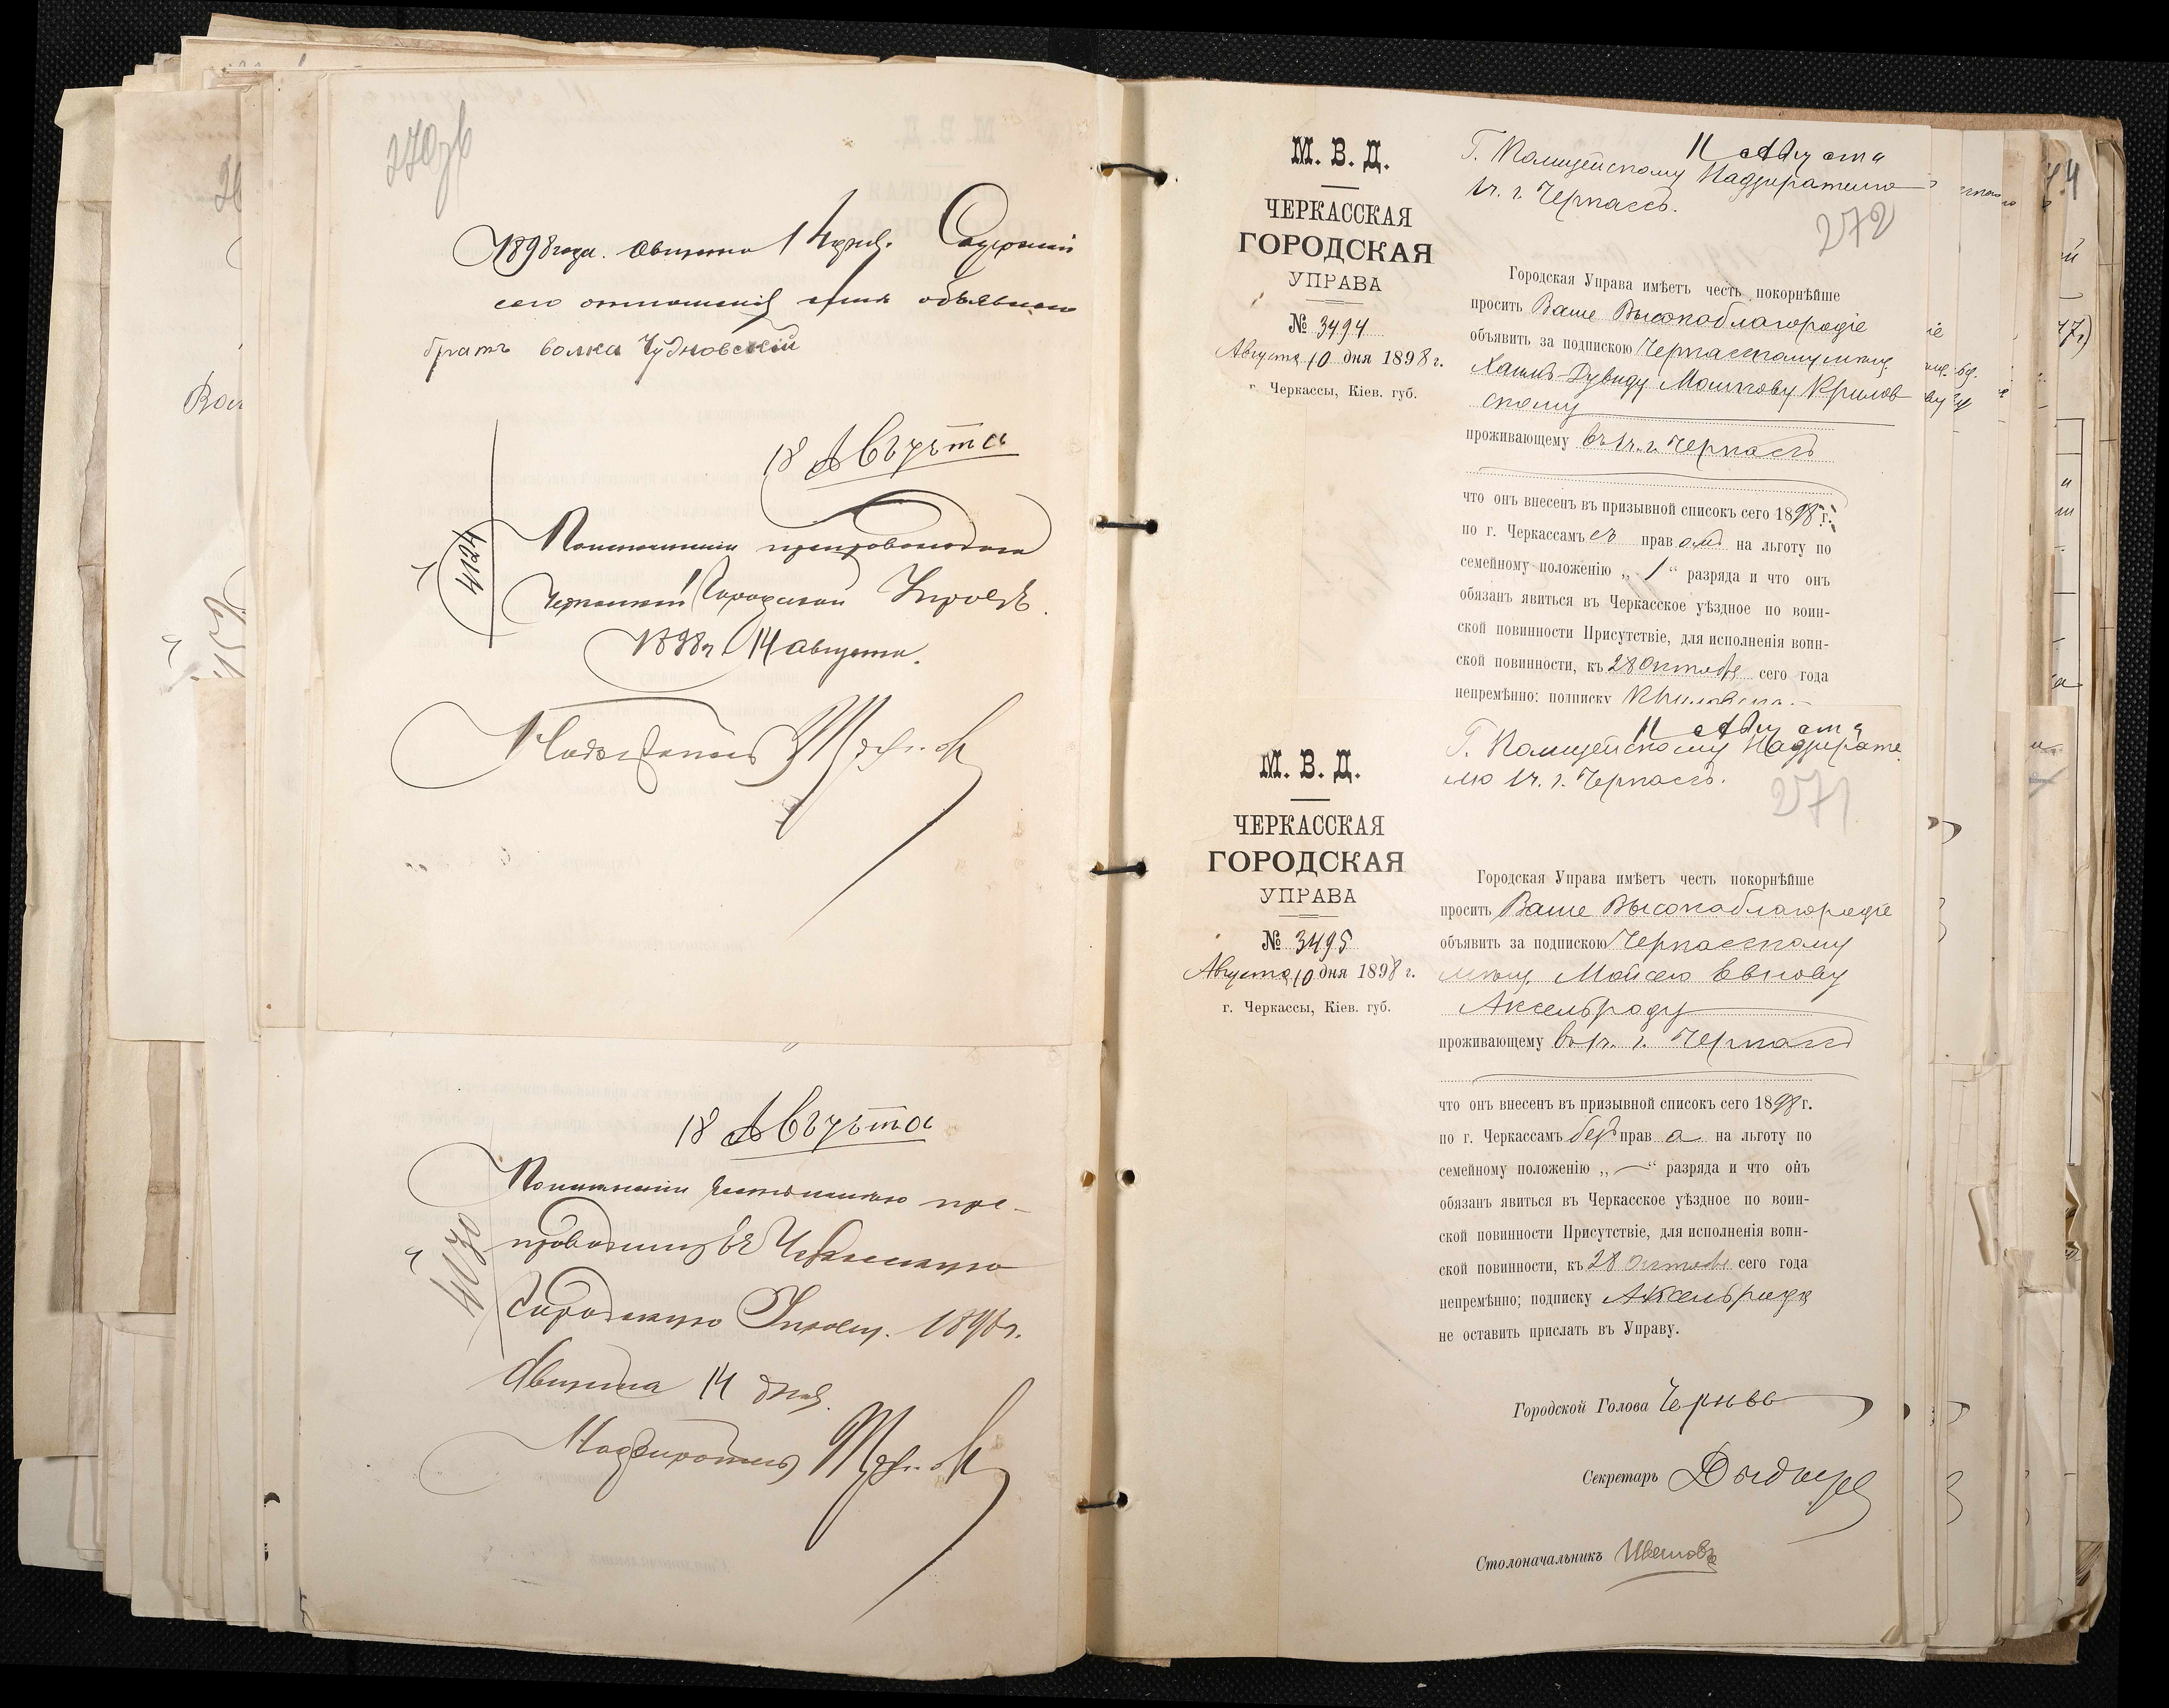 270об
1898 года. Августа 14 дня. Содержаніе
сего отношенія мнѣ объявлено
братъ Волка Чудновскій
18 Августа
4124
Исполненіи препровождаю
Черкасской Городской Управѣ.
1898 г. 14 августа.
Надзиратель
18 Августа
4130
По исполненіи
препроводить въ Черкасскую
Городскую Управу. 1898 г.
Августа 14 дня.
Надзиратель
М. В. Д.
ЧЕРКАССКАЯ
ГОРОДСКАЯ
УПРАВА
№ 3494
Августа 10 дня 1898 г.
г. Черкассы, Кіев. губ.
11 Августа
Г. Полицейскому Надзирателю
1 ч. г. Черкассъ.
272
Городская Управа имѣетъ честь покорнѣйше
просить Ваше Высокоблагородіе
объявить за подпискою Черкасскому мѣщ.
Хаимъ-Дувиду Мошкову Крилов
скому
проживающему въ 1 ч. г. Черкассъ
что онъ внесенъ въ призывной списокъ сего 1898 г.
по г. Черкассамъ съ правомъ на льготу по
семейному положенію „1“ разряда и что онъ
обязанъ явиться въ Черкасское уѣздное по воин-
ской повинности Присутствіе, для исполненія воин-
ской повинности, къ 28 Октября сего года
непремѣнно; подписку Криловска
М. В. Д.
ЧЕРКАССКАЯ
ГОРОДСКАЯ
УПРАВА
№ 3495
Августа 10 дня 1898 г.
г. Черкассы, Кіев. губ.
11 Августа
Г. Полицейскому Надзирате
лю 1 ч. г. Черкассъ.
271
Городская Управа имѣетъ честь покорнѣйше
просить Ваше Высокоблагородіе
объявить за подпискою Черкасскому
мѣщ. Мойсею Евнову
Аксельроду
проживающему въ 1 ч. г. Черкассъ
что онъ внесенъ въ призывной списокъ сего 1898 г.
по г. Черкассамъ безъ права на льготу по
семейному положенію „—“ разряда и что онъ
обязанъ явиться въ Черкасское уѣздное по воин-
ской повинности Присутствіе, для исполненія воин-
ской повинности, къ 28 Октября сего года
непремѣнно; подписку Аксельрода
не оставить прислать въ Управу.
Городской Голова
Секретарь
Столоначальникъ